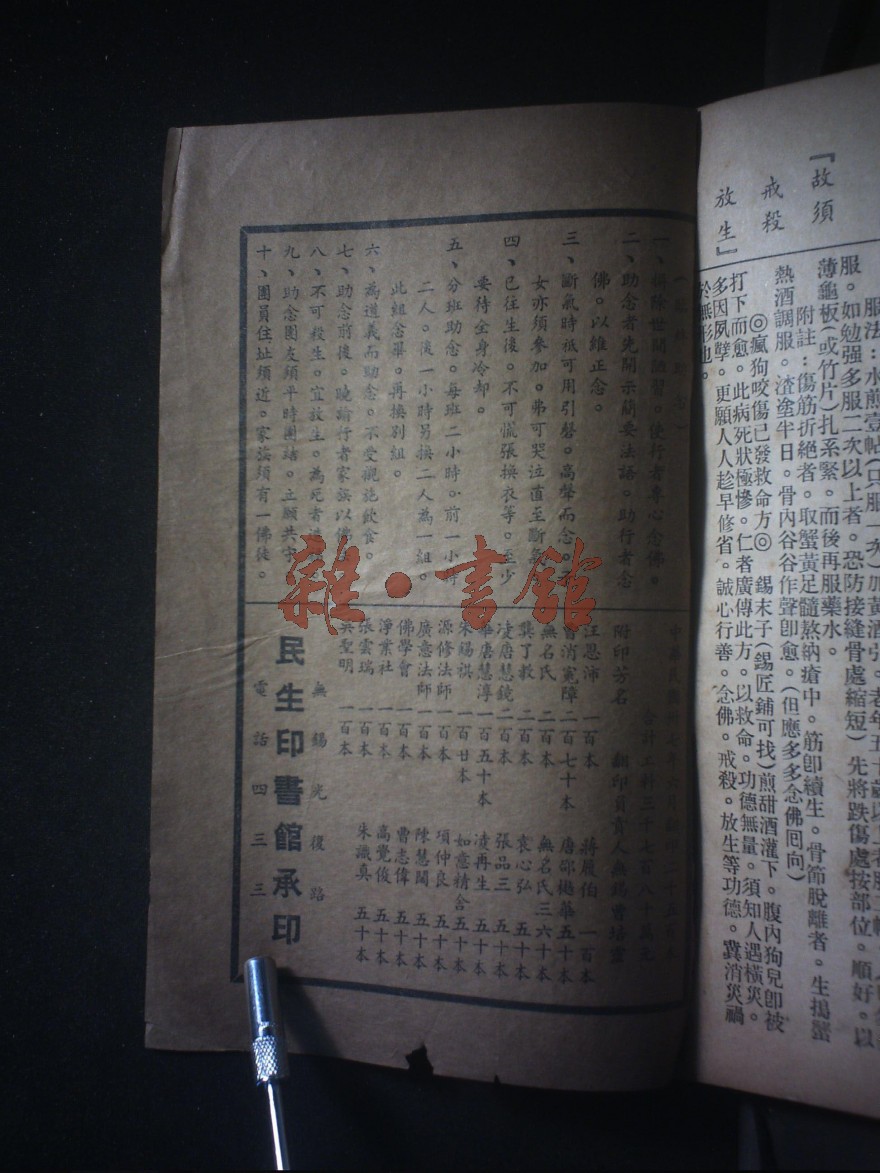 『故須
戒殺
放生』
服。如勉强多服二次以上者。恐防接縫骨處縮短)先將跌傷處按部位。順好。以
薄龜板(或竹片)扎系緊。而後再服藥水。
附註：傷筋折絕者。取蟹黃足髓熬納瘡中。筋卽續生。骨節脫離者。生搗蟹
熱酒調服。渣塗半日。骨內谷谷作聲卽愈。(但應多多念佛回向)
◎瘋狗咬傷已發救命方◎　錫末子(錫匠鋪可找)煎甜酒灌下。腹內狗兒卽被
打下而愈。此病死狀極慘。仁者廣傳此方。以救命。功德無量。須知人遇橫災。
多因夙孽。更願人人趁早修省。誠心行善。念佛。戒殺。放生等功德。冀消災禍
於無形也。
使行者專心念佛。
二、助念者先開示簡要法語。助行者念
佛。以維正念。
三、斷氣時祗可用引磬。高聲而念。
女亦須參加。弗可哭泣直至斷氣
四、已往生後。不可慌張換衣等。至少
要待全身冷却。
五、分班助念。每班二小時。前一小時
二人。後一小時另換二人為一組。
此組念畢。再換別組。
六、為道義而助念。不受襯施飲食。
七、助念前後。曉諭行者家族以佛
八、不可殺生。宜放生。為死者
九、助念團友須平時團結。立願共守
十、團員住址須近。家族須有一佛徒。
附印芳名　翻印負責人無錫曹培靈
汪恩沛　一百本　蔣履伯　一百本
消冤障　二百七十本　唐邵樾華　五十本
無名氏　二百本　無名氏　三六十本
龔了教　二百本　袁心弘　五十本
凌唐慧鏡　二百本　張品三　五十本
華唐慧淳　一百五十本　凌再生　五十本
朱錫祺　一百廿本　如意精舍　五十本
源修法師　一百本　項仲良　五十本
廣意法師　一百本　陳慧聞　五十本
佛學會　一百本　曹志偉　五十本
淨業社　一百本　高覺俊　五十本
張雲瑞　一百本　朱識真　五十本
吳聖明　一百本
無錫光復路
民生印書館承印
電話四三三
雜·書館